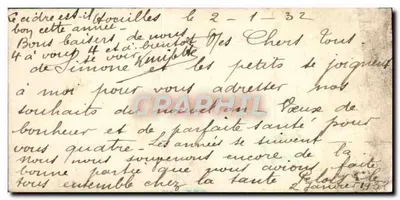 Le cidre est-il Houilles le 2-1-32
bon cette année -
Bons baisers de nous
4 à vous 4 et à bientôt Mes Chers Tous
se voir
de Simone et les petits se joignent
à moi pour vous adresser nos
souhaits de nouvel an. Vœux de
bonheur et de parfaite santé pour
vous quatre - Les années se suivent -
nous nous souvenons encore de la
bonne partie que nous avions faite
tous ensemble chez la tante le
2 janvier
CPAPHIL